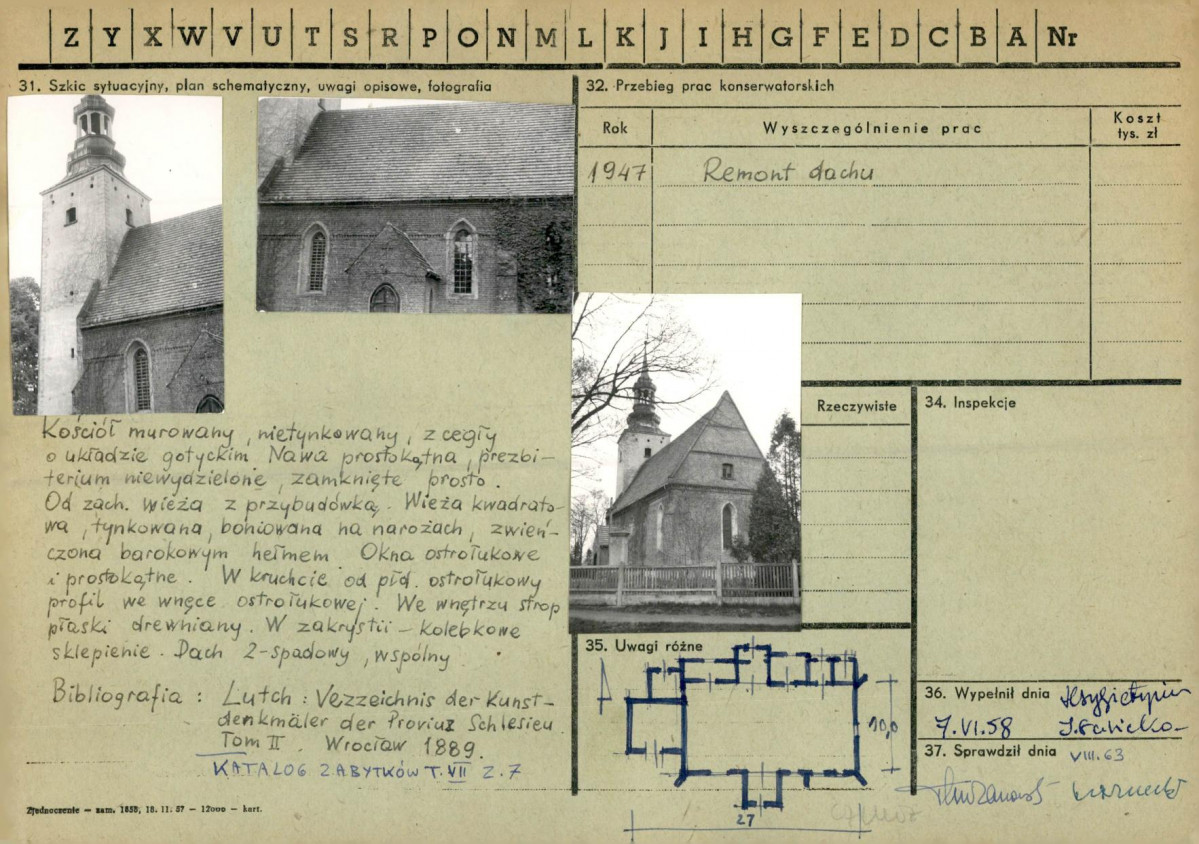 Z Y X W V U T S R P O N M L K J I H G F E D C B A Nr
31. Szkic sytuacyjny, plan schematyczny, uwagi opisowe, fotografia
Kościół murowany, nietynkowany, z cegły
o układzie gotyckim. Nawa prostokątna, prezbi-
terium niewydzielone, zamknięte prosto.
Od zach. wieża z przybudówką. Wieża kwadrato-
wa, tynkowana, boniowana na narożach, zwień-
czona barokowym hełmem. Okna ostrołukowe
i prostokątne. W kruchcie od płd. ostrołukowy
profil we wnęce ostrołukowej. We wnętrzu strop
płaski drewniany. W zakrystii – kolebkowe
sklepienie. Dach 2-spadowy, wspólny.
Bibliografia: Lutch: Vezzeichnis der Kunst-
denkmäler der Proviuz Schlesieu
Tom II. Wrocław 1889.
KATALOG ZABYTKÓW T. VII Z. 7
Zjednoczenie — zam. 1853, 18. 11. 57 — 12000 — kart.
32. Przebieg prac konserwatorskich
Rok
Wyszczególnienie prac
Koszt
tys. zł
1947 Remont dachu
Rzeczywiste
34. Inspekcje
35. Uwagi różne
10,0
27
36. Wypełnił dnia
7.VI.58
37. Sprawdził dnia VIII.63